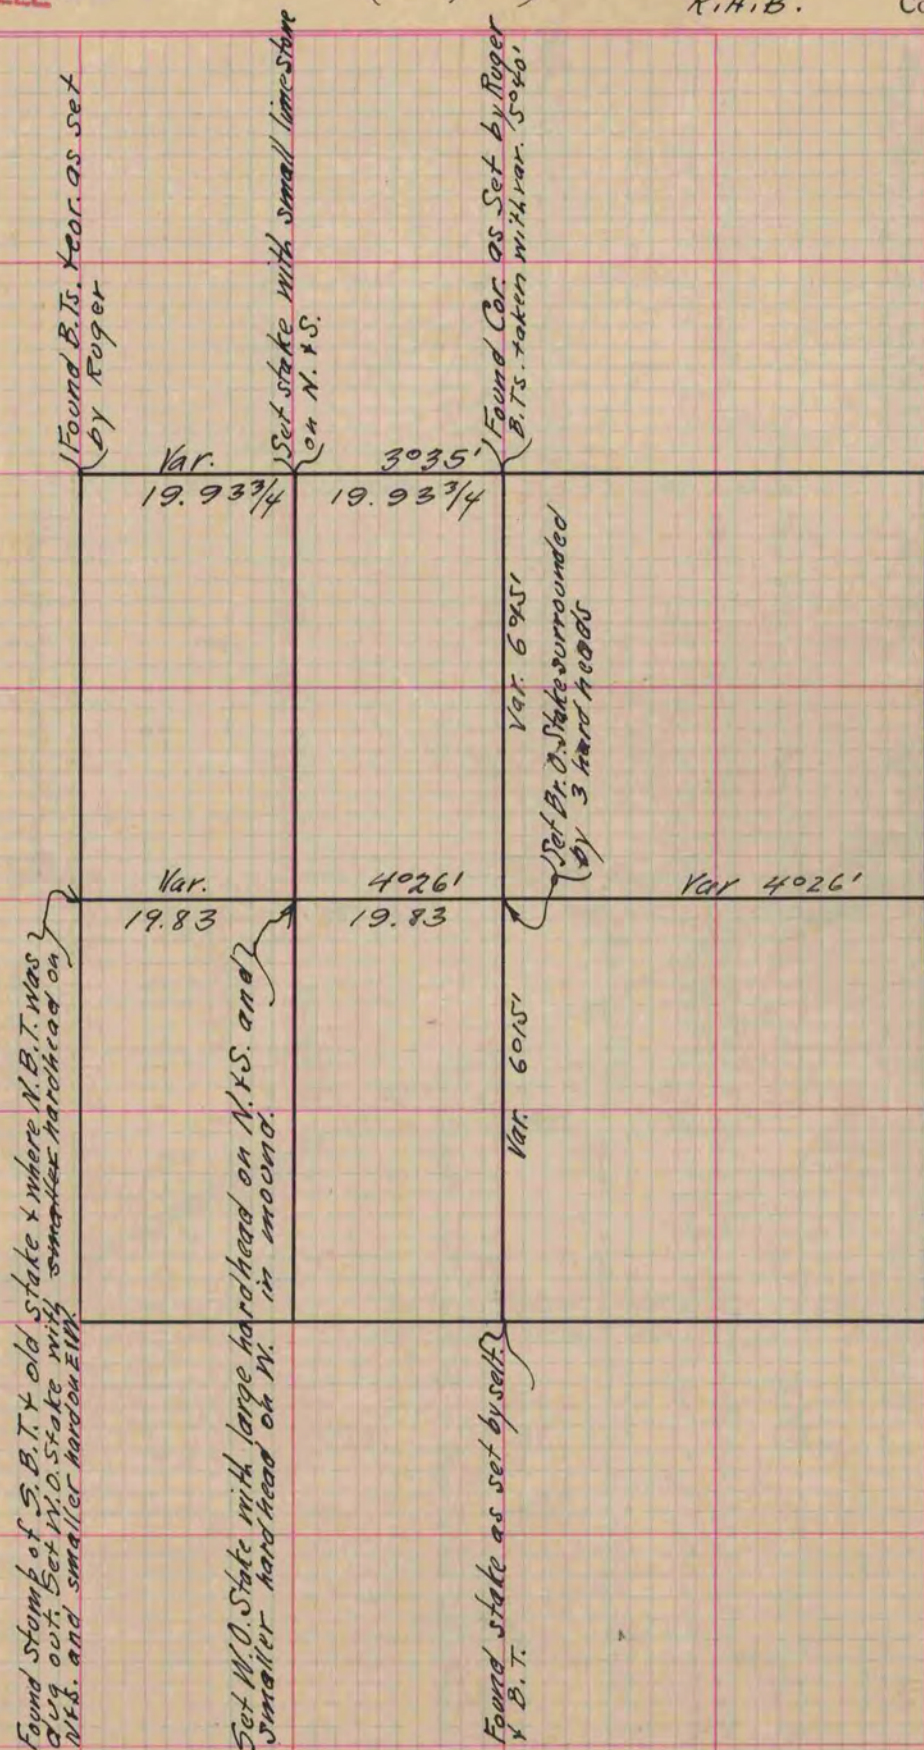 R.H.B.
Found B.Ts. & cor. as set
by Ruger
Set stake with small limestone
on N. & S.
Found Cor. as Set by Ruger
B.Ts. taken with var. 5°40'
Var. 3°35'
19.93 3/4 19.93 3/4
Var. 6°45'
Set Br. O. Stake surrounded
by 3 hard heads
Var. 4°26' Var 4°26'
19.83 19.83
Var. 6°15'
Found stump of S.B.T. & old stake & where N.B.T. was
dug out. Set W.O. Stake with smaller hardhead on
N&S. and smaller hard on E&W.
Set W.O. Stake with large hardhead on N. & S. and
smaller hardhead on W. in mound.
Found stake as set by self.
& B.T.